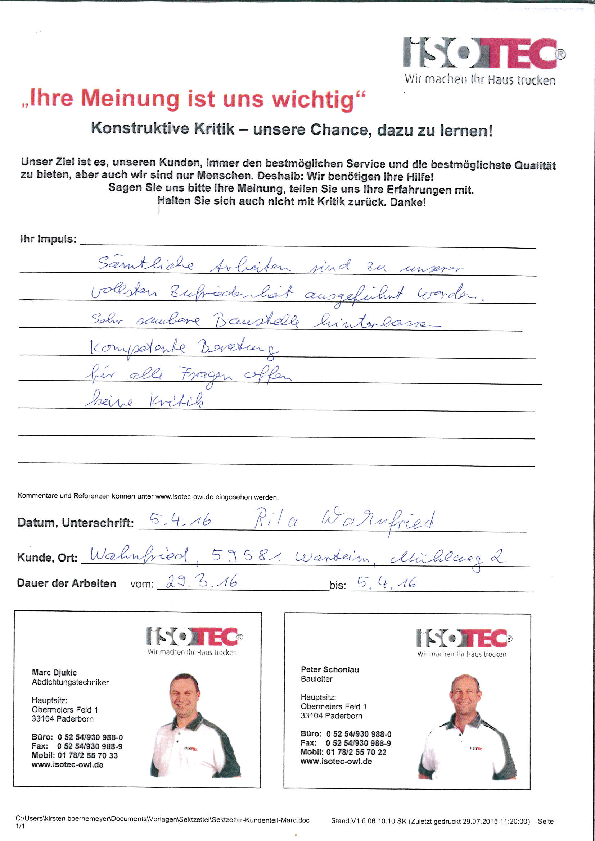 ISOTEC®
Wir machen Ihr Haus trocken
„Ihre Meinung ist uns wichtig“
Konstruktive Kritik – unsere Chance, dazu zu lernen!
Unser Ziel ist es, unseren Kunden, immer den bestmöglichen Service und die bestmöglichste Qualität
zu bieten, aber auch wir sind nur Menschen. Deshalb: Wir benötigen Ihre Hilfe!
Sagen Sie uns bitte Ihre Meinung, teilen Sie uns Ihre Erfahrungen mit.
Halten Sie sich auch nicht mit Kritik zurück. Danke!
Ihr Impuls:
Sämtliche Arbeiten sind zu unserer
vollsten Zufriedenheit ausgeführt worden.
Sehr saubere Baustelle hinterlassen
Kompetente Beratung
für alle Fragen offen
keine Kritik
Kommentare und Referenzen können unter www.isotec-owl.de eingesehen werden.
Datum, Unterschrift: 5.4.16 Rita Wahnfried
Kunde, Ort: Wahnfried, 59581 Warstein, 2
Dauer der Arbeiten vom: 29.3.16 bis: 5.4.16
ISOTEC®
Wir machen Ihr Haus trocken
Marc Djukic
Abdichtungstechniker
Hauptsitz:
Obermeiers Feld 1
33104 Paderborn
Büro: 0 52 54/930 988-0
Fax: 0 52 54/930 988-9
Mobil: 01 78/2 55 70 33
www.isotec-owl.de
ISOTEC®
Wir machen Ihr Haus trocken
Peter Schonlau
Bauleiter
Hauptsitz:
Obermeiers Feld 1
33104 Paderborn
Büro: 0 52 54/930 988-0
Fax: 0 52 54/930 988-9
Mobil: 01 78/2 55 70 22
www.isotec-owl.de
Stand V1.6 06.10.10 SK (Zuletzt gedruckt 29.07.2015 11:20:00) Seite
1/1